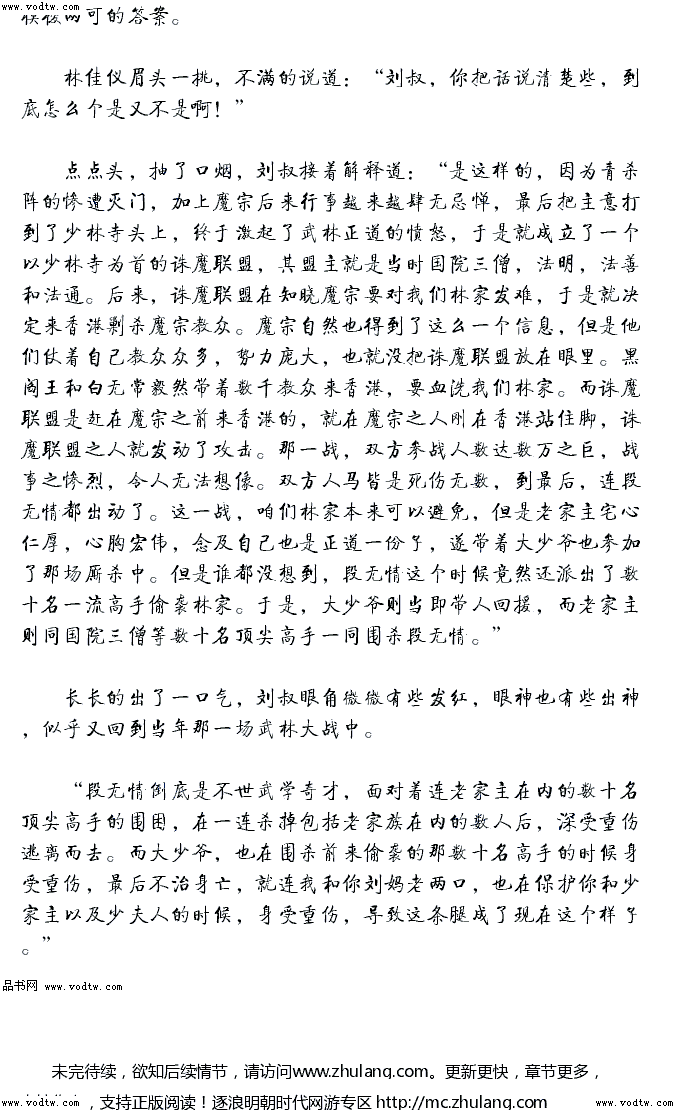 www.vodtw.com www.vodtw.com www.vodtw.com
模棱两可的答案。
林佳仪眉头一挑，不满的说道：“刘叔，你把话说清楚些，到
底怎么个是又不是啊！”
点点头，抽了口烟，刘叔接着解释道：“是这样的，因为青杀
阵的惨遭灭门，加上魔宗后来行事越来越肆无忌惮，最后把主意打
到了少林寺头上，终于激起了武林正道的愤怒，于是就成立了一个
以少林寺为首的诛魔联盟，其盟主就是当时国院三僧，法明，法善
和法通。后来，诛魔联盟在知晓魔宗要对我们林家发难，于是就决
定来香港剿杀魔宗教众。魔宗自然也得到了这么一个信息，但是他
们仗着自己教众众多，势力庞大，也就没把诛魔联盟放在眼里。黑
阎王和白无常毅然带着数千教众来香港，要血洗我们林家。而诛魔
联盟是赶在魔宗之前来香港的，就在魔宗之人刚在香港站住脚，诛
魔联盟之人就发动了攻击。那一战，双方参战人数达数万之巨，战
事之惨烈，令人无法想像。双方人马皆是死伤无数，到最后，连段
无情都出动了。这一战，咱们林家本来可以避免，但是老家主宅心
仁厚，心胸宏伟，念及自己也是正道一份子，遂带着大少爷也参加
了那场厮杀中。但是谁都没想到，段无情这个时候竟然还派出了数
十名一流高手偷袭林家。于是，大少爷则当即带人回援，而老家主
则同国院三僧等数十名顶尖高手一同围杀段无情。”
长长的出了一口气，刘叔眼角微微有些发红，眼神也有些出神
，似乎又回到当年那一场武林大战中。
“段无情倒底是不世武学奇才，面对着连老家主在内的数十名
顶尖高手的围困，在一连杀掉包括老家族在内的数人后，深受重伤
逃离而去。而大少爷，也在围杀前来偷袭的那数十名高手的时候身
受重伤，最后不治身亡，就连我和你刘妈老两口，也在保护你和少
家主以及少夫人的时候，身受重伤，导致这条腿成了现在这个样子
。”
品书网 www.vodtw.com
未完待续，欲知后续情节，请访问www.zhulang.com。更新更快，章节更多，
，支持正版阅读！逐浪明朝时代网游专区 http://mc.zhulang.com
www.vodtw.com www.vodtw.com